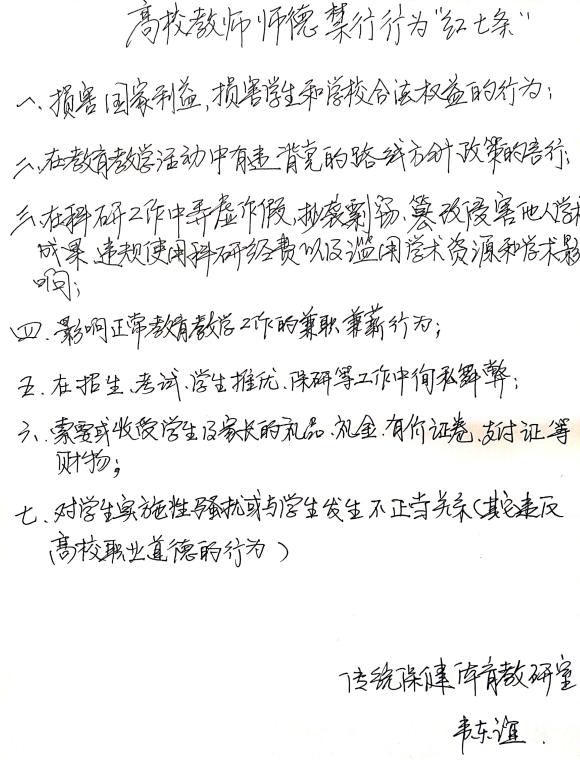 高校教师师德禁行行为"红七条"
一、损害国家利益,损害学生和学校合法权益的行为;
二、在教育教学活动中有违背党的路线方针政策的言行;
三、在科研工作中弄虚作假、抄袭剽窃、篡改侵害他人学术
成果、违规使用科研经费以及滥用学术资源和学术影
响;
四、影响正常教育教学工作的兼职兼薪行为;
五、在招生、考试、学生推优、保研等工作中徇私舞弊;
六、索要或收受学生及家长的礼品、礼金、有价证卷、支付证等
财物;
七、对学生实施性骚扰或与学生发生不正当关系(其它违反
高校职业道德的行为)
传统保健体育教研室
韦东谊